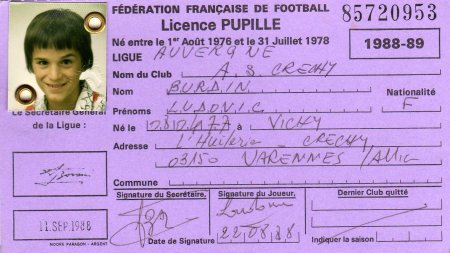 FÉDÉRATION FRANÇAISE DE FOOTBALL
85720953
Licence PUPILLE
Né entre le 1er Août 1976 et le 31 Juillet 1978
1988-89
LIGUE AUVERGNE
Nom du Club A.S. CRECHY
Nom BURDIN
Nationalité
Prénoms LUDOVIC F
Le Secrétaire Général
de la Ligue :
Né le à VICHY
Adresse L'Huilerie CRECHY
03150 VARENNES /Allier
Commune
Signature du Secrétaire.
Signature du Joueur.
Dernier Club quitté
11 SEP. 1988
Date de Signature 22.08.88
Indiquer la saison :
NOORS PARAGON - ARGENT